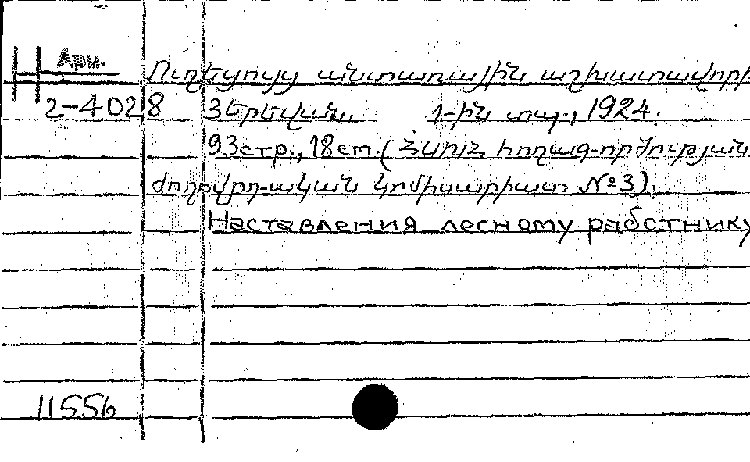 Арм.
Ուղեցույց անտառային աշխատավորի
2-4028 Յերեվան. 1-ին տպ., 1924.
93стр., 18ст. (ՀՍԽՀ հողագործության
ժողովրդական կոմիսարիատ №3).
Наставления лесному работнику
11556